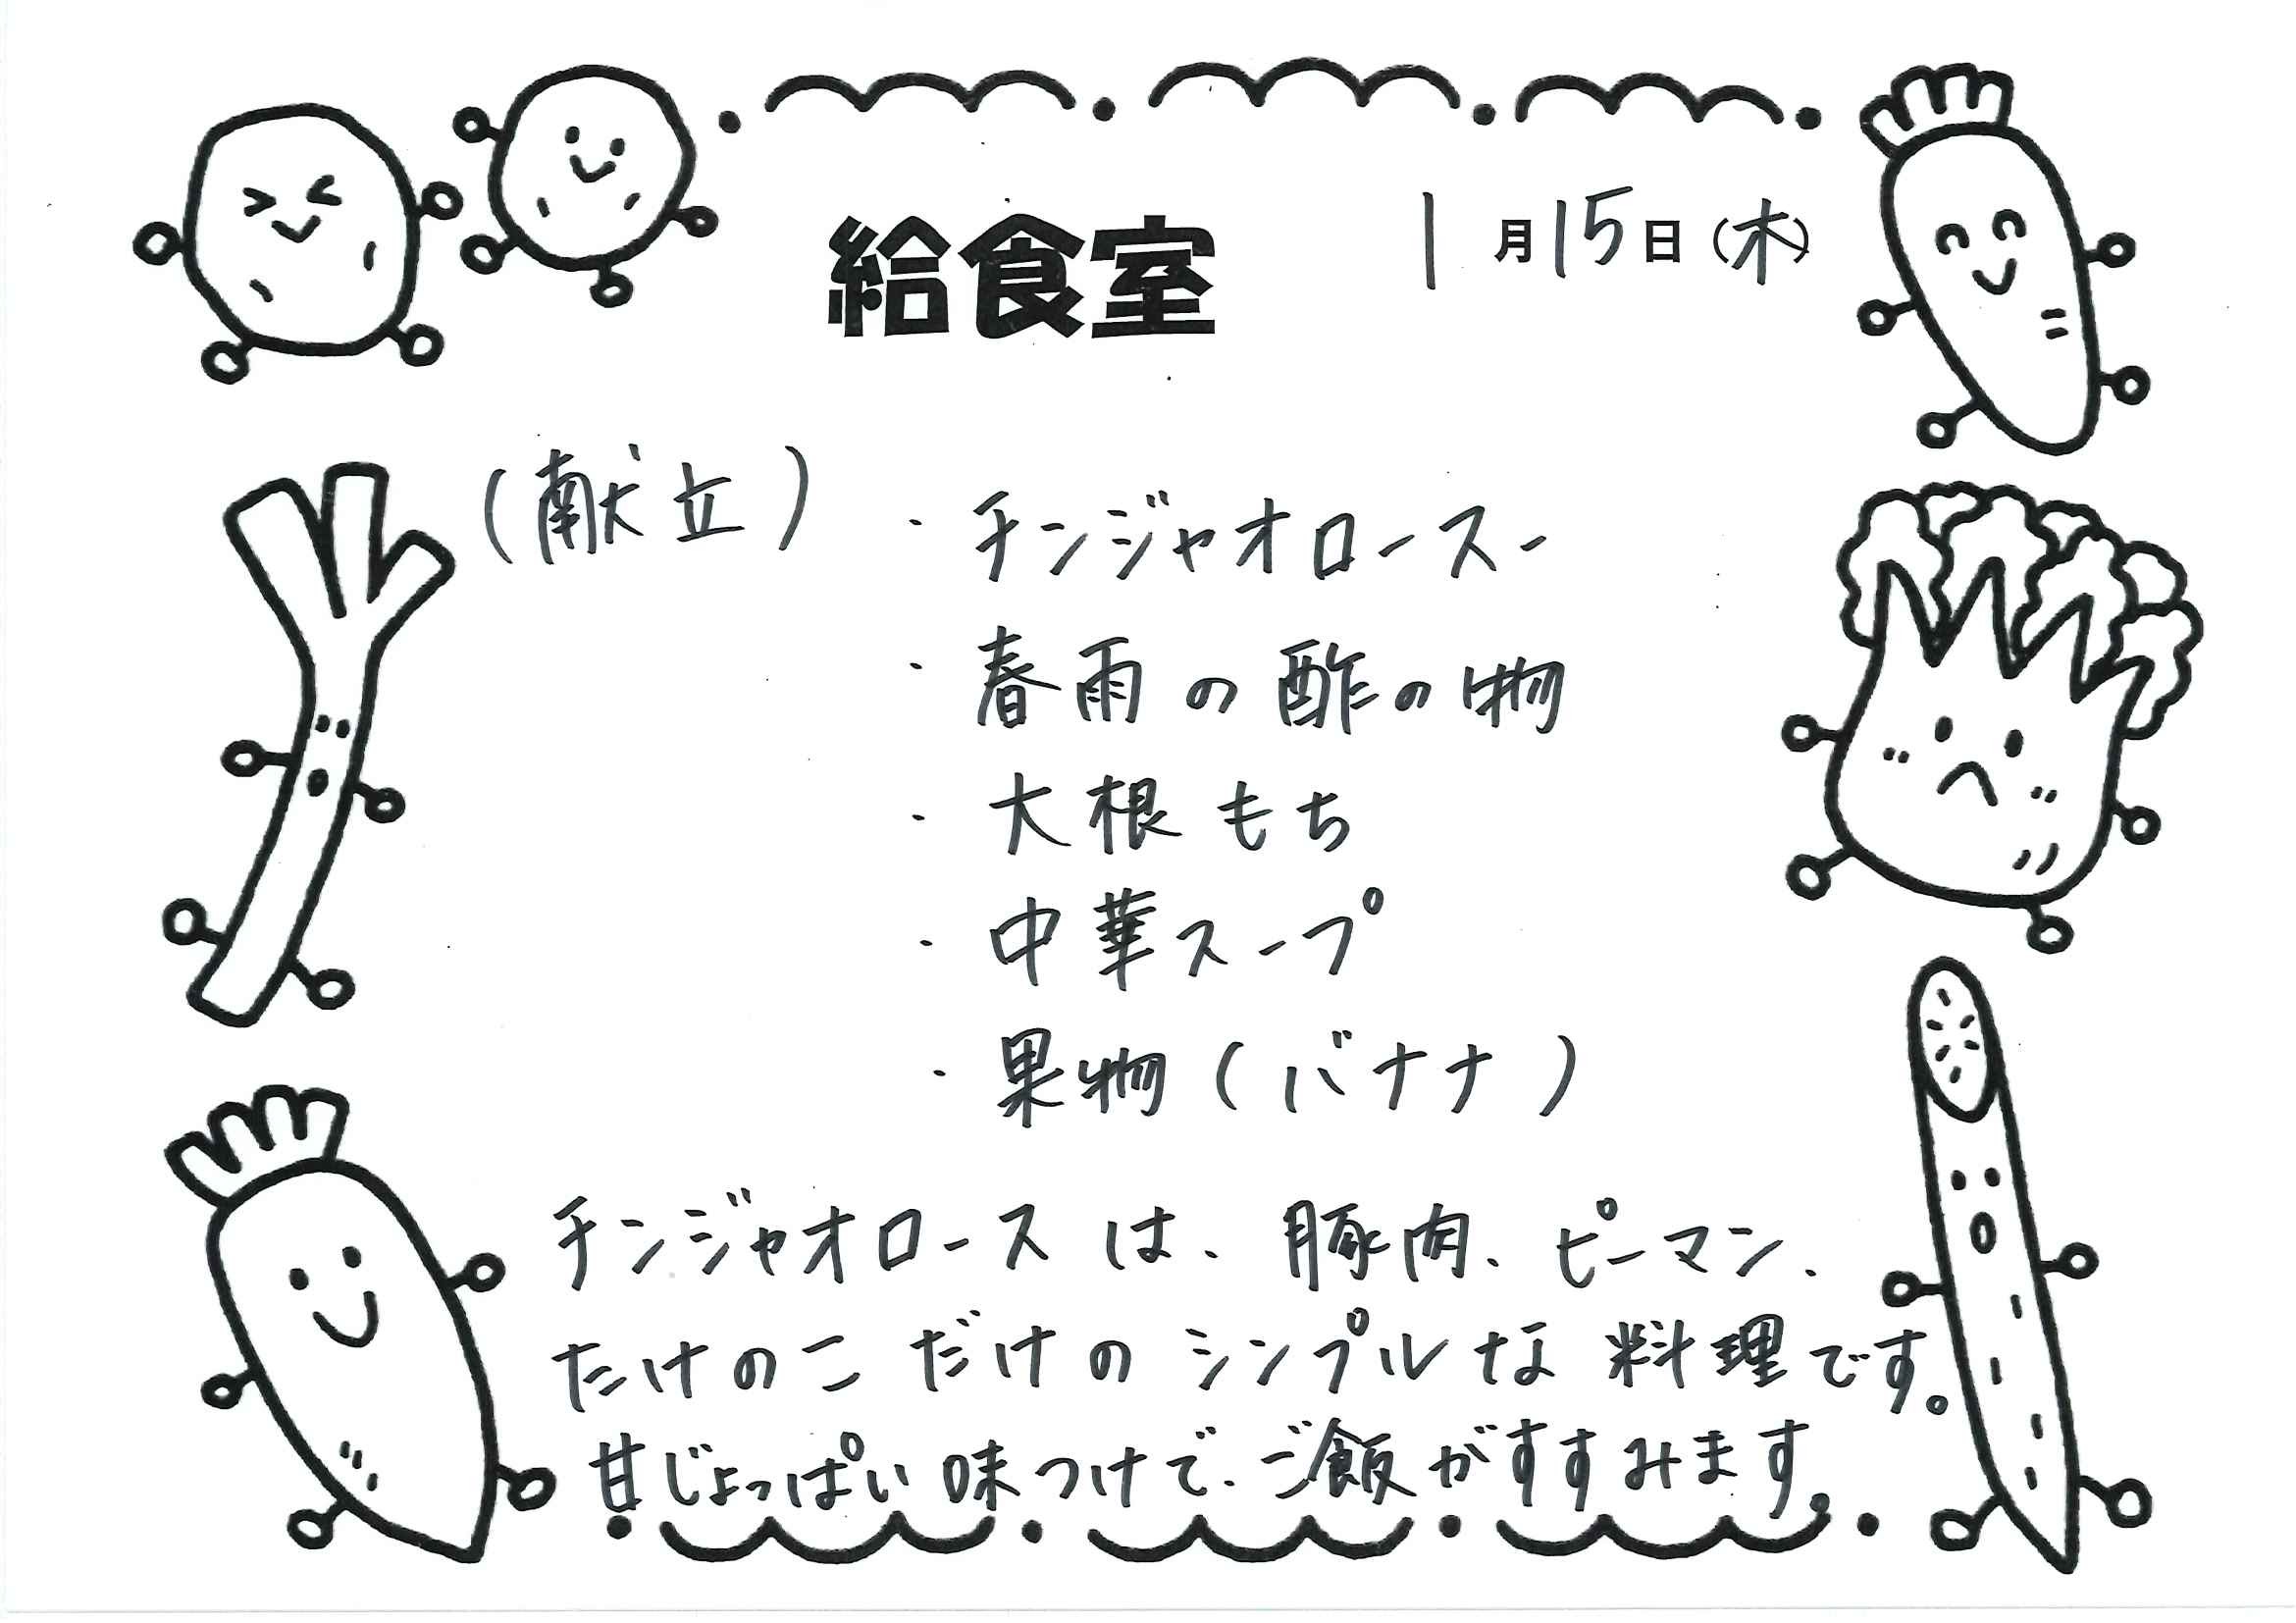 給食室
1月15日(木)
(献立)
・チンジャオロースー
・春雨の酢の物
・大根もち
・中華スープ
・果物(バナナ)
チンジャオロースは、豚肉、ピーマン、
たけのこだけのシンプルな料理です。
甘じょっぱい味つけで、ご飯がすすみます。